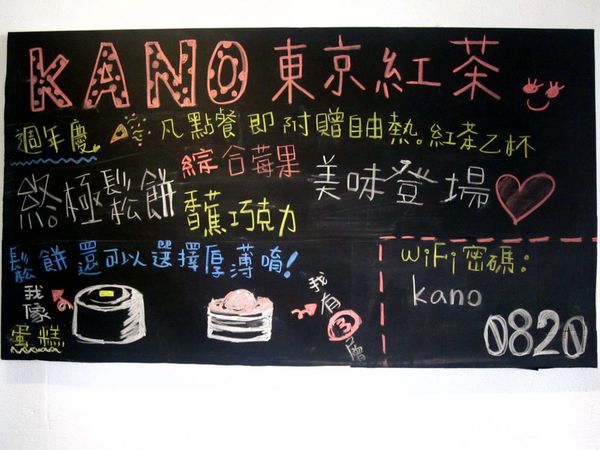 KANO東京紅茶
週年慶 凡點餐即附贈自由熱。紅茶乙杯
終極鬆餅 綜合莓果 美味登場
香蕉巧克力
鬆餅還可以選擇厚薄唷!
我像
蛋糕
我有3層
WiFi密碼:
kano
0820